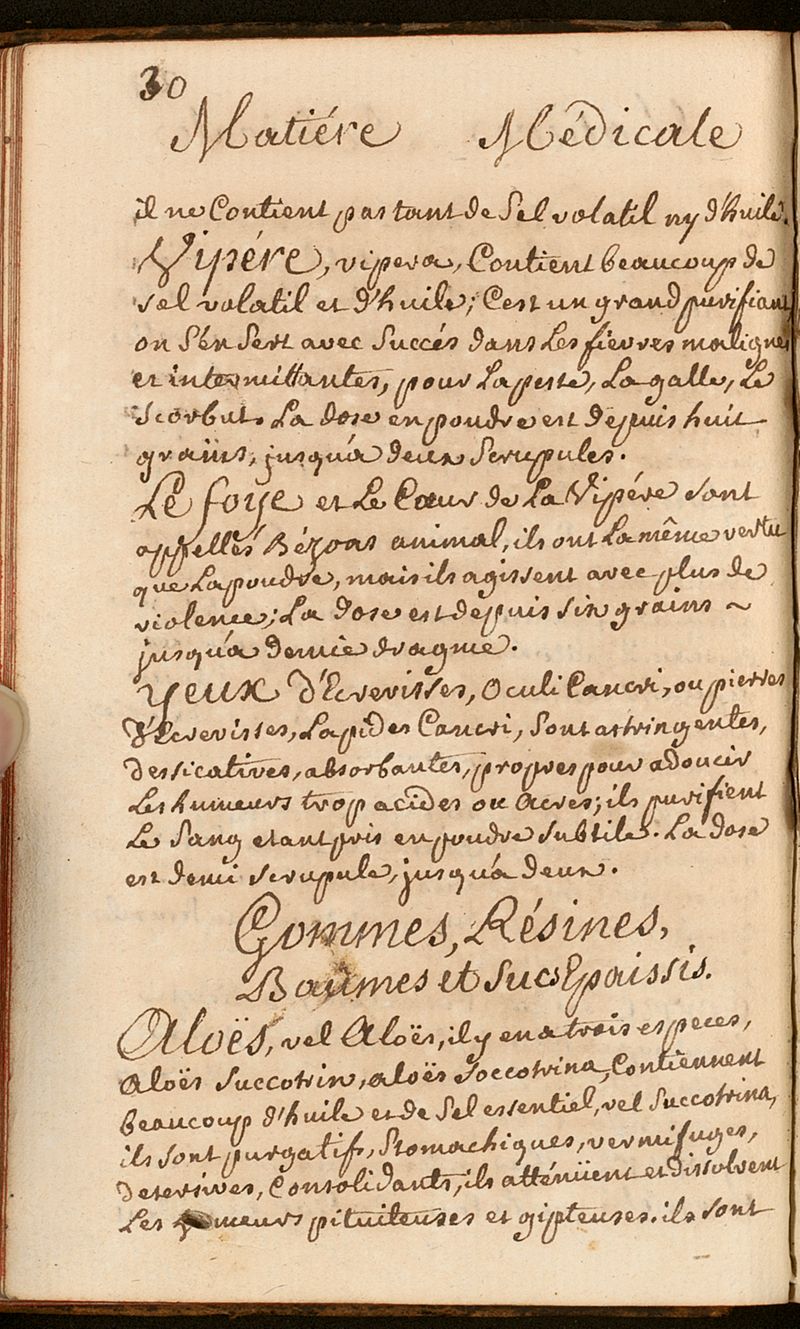 30
Matiére Médicale
il ne Contient pas tant de Sel volatil ny d'huile.
Vipére, vipera, Contient beaucoup de
sel volatil et d'huile; C'est un grand purifiant
on S'én Sert avec Succés dans Les fievres malignes
et intermittantes, pour La peste, La galle, Le
Scorbut. La dose en poudre est depuis huit
graïns, jusqu'a deux Scrupules.
Le foye et Le Cœur de La Vipére sont
appellés Bézoas animal, ils ont La même vertu
que La poudre, mais ils agissent avec plus de
violence; La dose est depuis six grains ~
jusqu'a demie dragme.
Yeux d'Ecrevisses, Oculi Cancri, ou pierres
d'Ecrevisses, Lapides Cancri, Sont astringentes,
dessicatives, absorbantes, propres pour adoucir
Les humeurs trop acides ou Acres; ils purifient
Le Sang etant pris en poudre subtile. La dose
est demi scrupule, jusqu'a deux.
Gommes, Résines,
Baumes et Sucs Epaissis.
Aloës, vel Aloës, il y en a trois especes,
Aloës Succotrin, aloës Soccotrina, Contiennent
beaucoup d'huile et de Sel essentiel, vel Succotrina,
ils sont purgatifs, Stomachiques, vermifuges,
detersives, Consolidants, ils atténüent et dissolvent
Les humeurs pituiteuses et gipteuses. ils sont